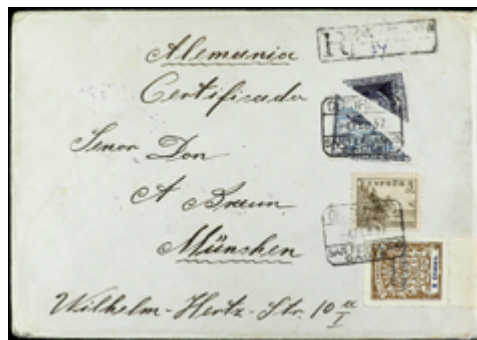 Alemania
Certificado
Senor Don
A Braun
München
Wilhelm-Hertz-Str. 10 a
I
R
ESPAÑA